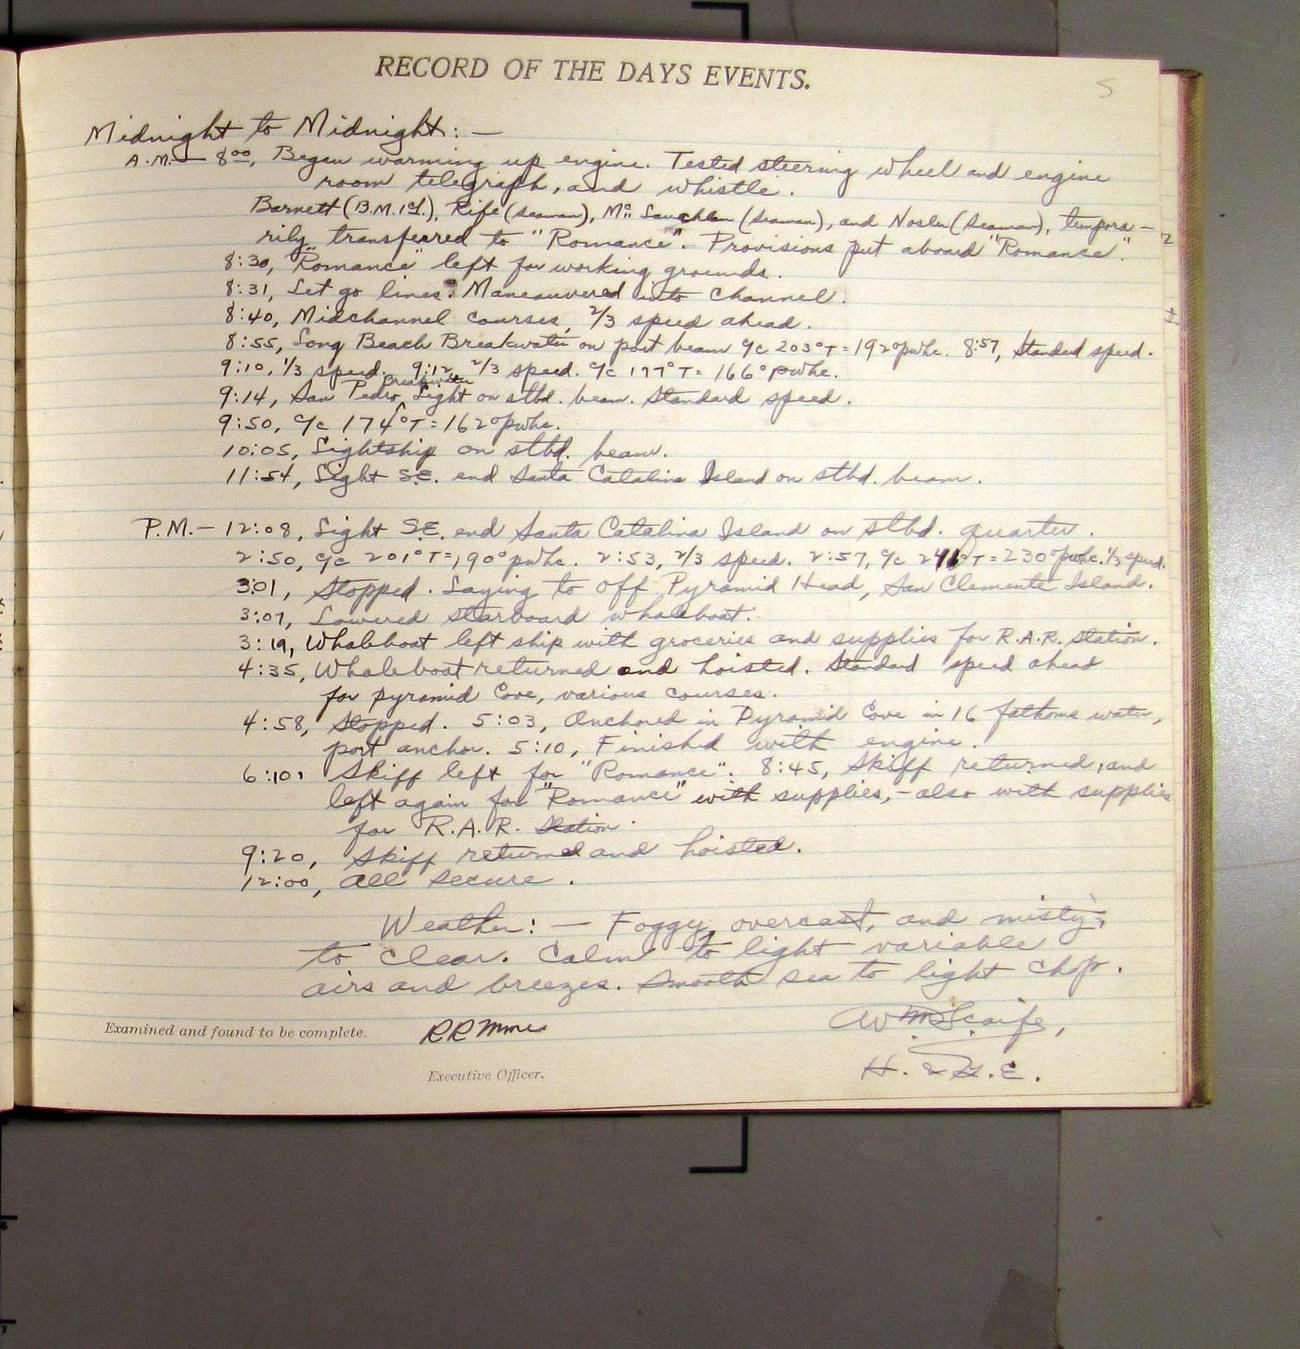 RECORD OF THE DAYS EVENTS.
5
Midnight to Midnight: —
A.M. — 8⁰⁰, Began warming up engine. Tested steering wheel and engine
room telegraph, and whistle.
Barnett (B.M.1cl.), Rife (seaman), (seaman), and Nosler (seaman), tempora-
rily transferred to "Romance". Provisions put aboard "Romance".
8:30, "Romance" left for working grounds.
8:31, Let go lines. Maneuvered into channel.
8:40, Midchannel courses, 2/3 speed ahead.
8:55, Long Beach Breakwater on port beam c/c 203°T = 192°pwhc. 8:57, Standard speed.
9:10, 1/3 speed. 9:12, 2/3 speed. c/c 177°T = 166° pwhc.
9:14, San Pedro Breakwater Light on stbd. beam. Standard speed.
9:50, c/c 174°T = 162°pwhc.
10:05, Lightship on stbd. beam.
11:54, Light S.E. end Santa Catalina Island on stbd. beam.
P.M. — 12:08, Light S.E. end Santa Catalina Island on stbd. quarter.
2:50, c/c 201°T = 190°pwhc. 2:53, 2/3 speed. 2:57, c/c 241°T = 230°pwhc. 1/3 speed.
3:01, Stopped. Laying to off Pyramid Head, San Clemente Island.
3:07, Lowered starboard whaleboat.
3:19, Whaleboat left ship with groceries and supplies for R.A.R. station.
4:35, Whaleboat returned and hoisted. Standard speed ahead
for pyramid Cove, various courses.
4:58, Stopped. 5:03, Anchored in Pyramid Cove in 16 fathoms water,
port anchor. 5:10, Finished with engine.
6:10, Skiff left for "Romance". 8:45, Skiff returned, and
left again for "Romance" with supplies, - also with supplies
for R.A.R. Station.
9:20, Skiff returned and hoisted.
12:00, All secure.
Weather: — Foggy, overcast, and misty,
to clear. Calm to light variable
airs and breezes. Smooth sea to light chop.
Examined and found to be complete.
Wm Scaife,
Executive Officer.
H. & G.E.